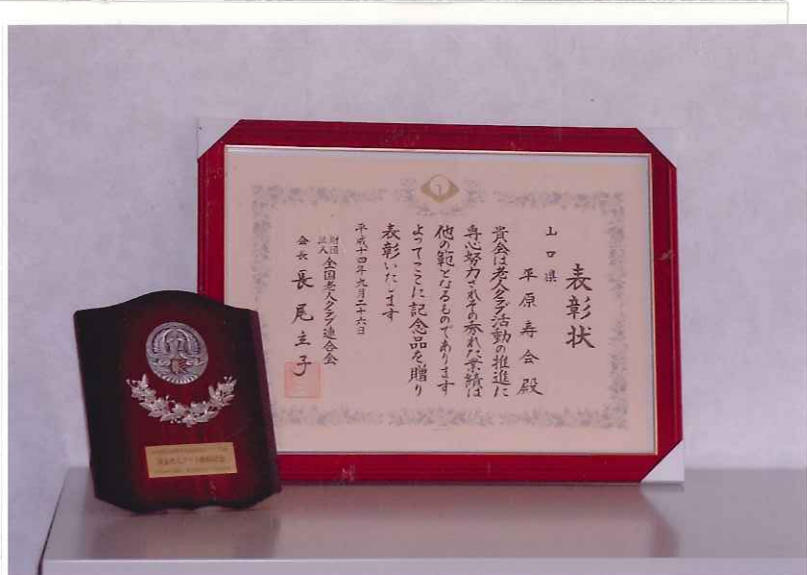 表彰状
山口県
平原寿会殿
貴会は老人クラブ活動の推進に
専心努力されその秀れた業績は
他の範となるものであります
よってここに記念品を贈り
表彰いたします
平成十四年九月二十六日
財団法人 全国老人クラブ連合会
会長 長尾立子